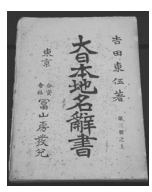 吉田東伍著
大日本地名辭書
東京
合資
會社
冨山房發兌